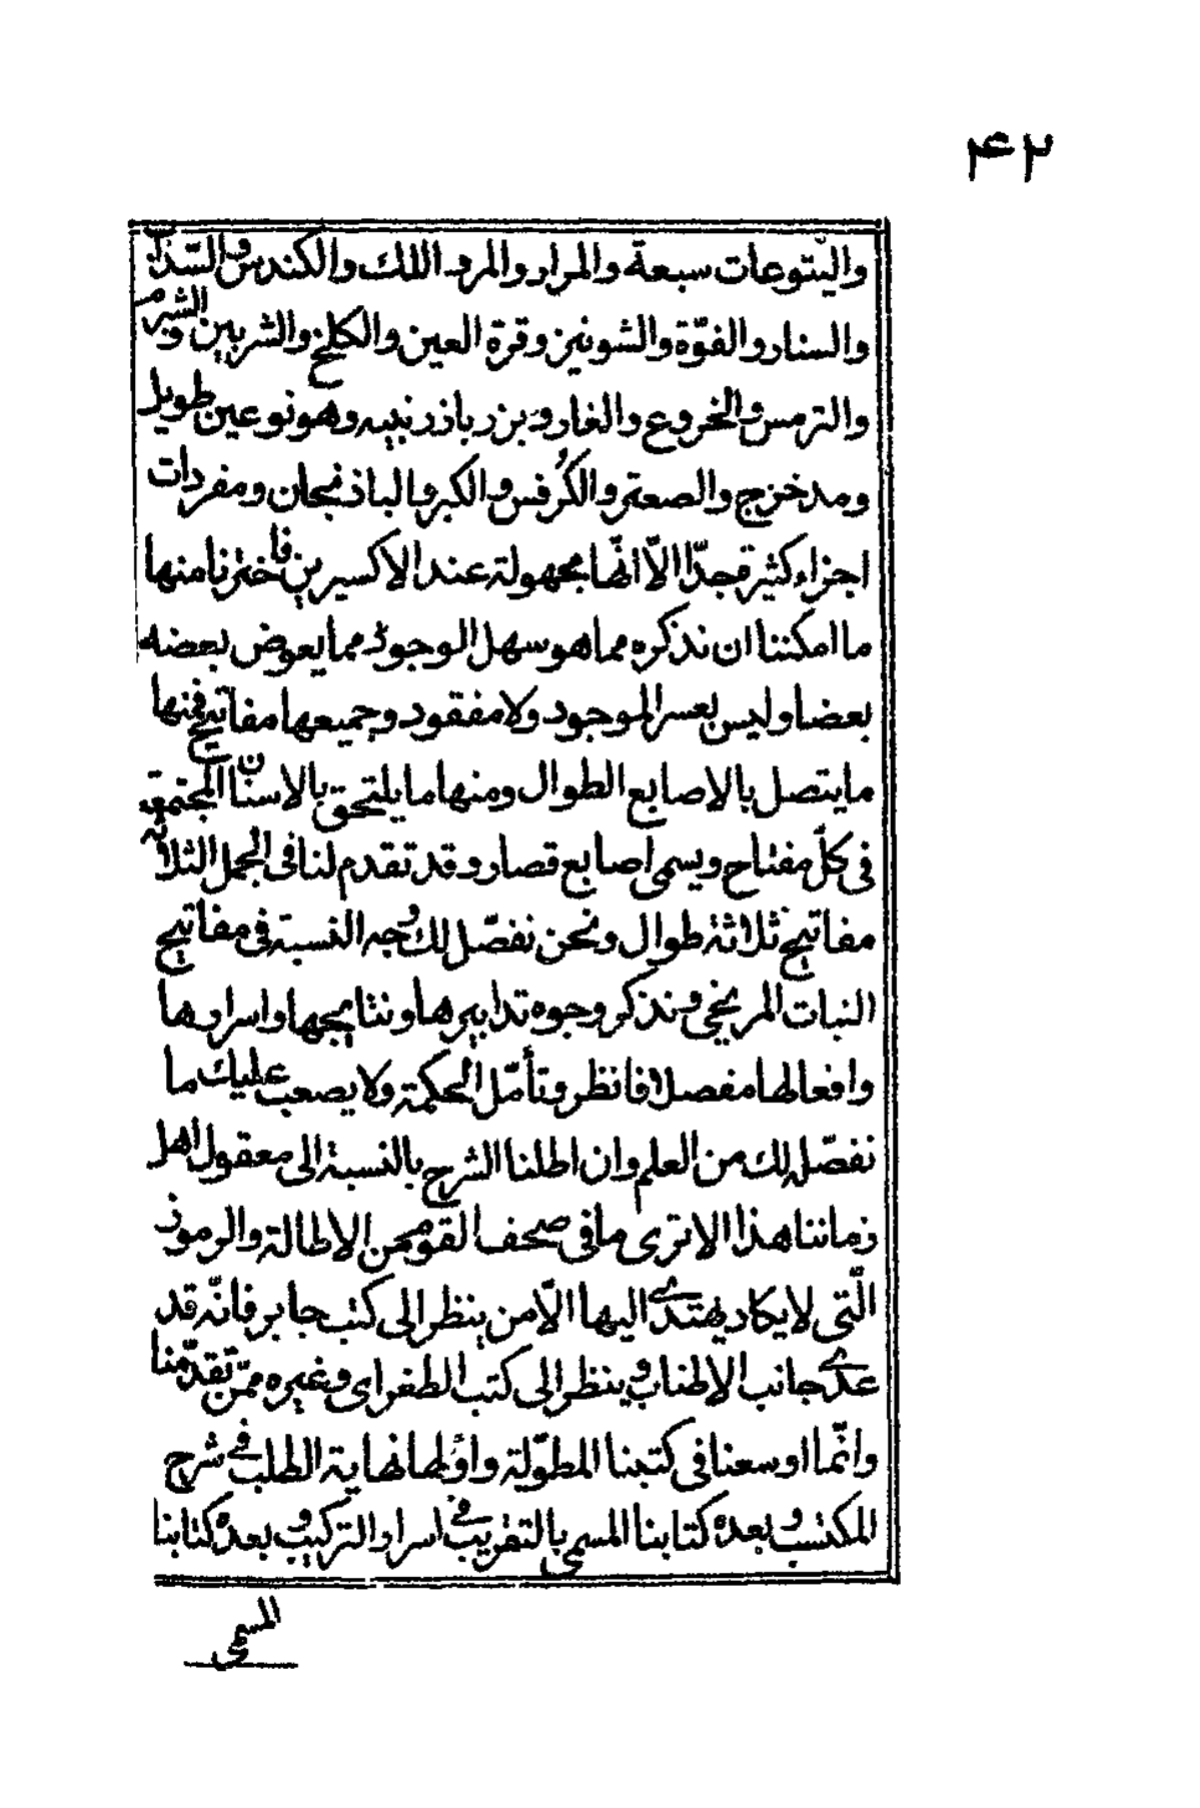 ۴۲
واليتوعات سبعة والمرار والمرو اللك والكندس والسذاب
والسنار والفوّة والشونيز وقرة العين والكلخ والشربين والشبرم
والترمس والخروع والغار وبزر باذرنبيه وهو نوعين طويل
ومدخرج والصعتر والكُرفس والكبر والباذنجان ومفردات
اجزاء كثيرة جدّا الاّ انّها مجهولة عند الاكسيرين فاخترنا منها
ما امكننا ان نذكره مما هو سهل الوجود مما يعوض بعضه
بعضا وليس بعسر الموجود ولا مفقود وجميعها مفاتيح فمنها
ما يتصل بالاصابع الطوال ومنها ما يلتحق بالاسنان المجتمعة
فى كلّ مفتاح ويسمى اصابع قصار وقد تقدم لنا فى الجمل الثلاثة
مفاتيح ثلاثة طوال ونحن نفصّل لك وجه النسبة فى مفاتيح
النبات المريخى ونذكر وجوه تدابيرها ونتايجها واسرارها
وافعالها مفصلا فانظر وتأمّل الحكمة ولا يصعب عليك ما
نفصّله لك من العلم وان اطلنا الشرح بالنسبة الى معقول اهل
زماننا هذا الا ترى ما فى صحف القوم من الاطالة والرموز
الّتى لا يكاد يهتدى اليها الاّ من ينظر الى كتب جابر فانّه قد
عدى جانب الاطناب وينظر الى كتب الطغراى وغيره ممّن تقدّمنا
وانّما اوسعنا فى كتبنا المطوّلة واوّلها نهاية الطلب فى شرح
المكتسب وبعده كتابنا المسمى بالتقريب فى اسرار التركيب وبعده كتابنا
المسمى